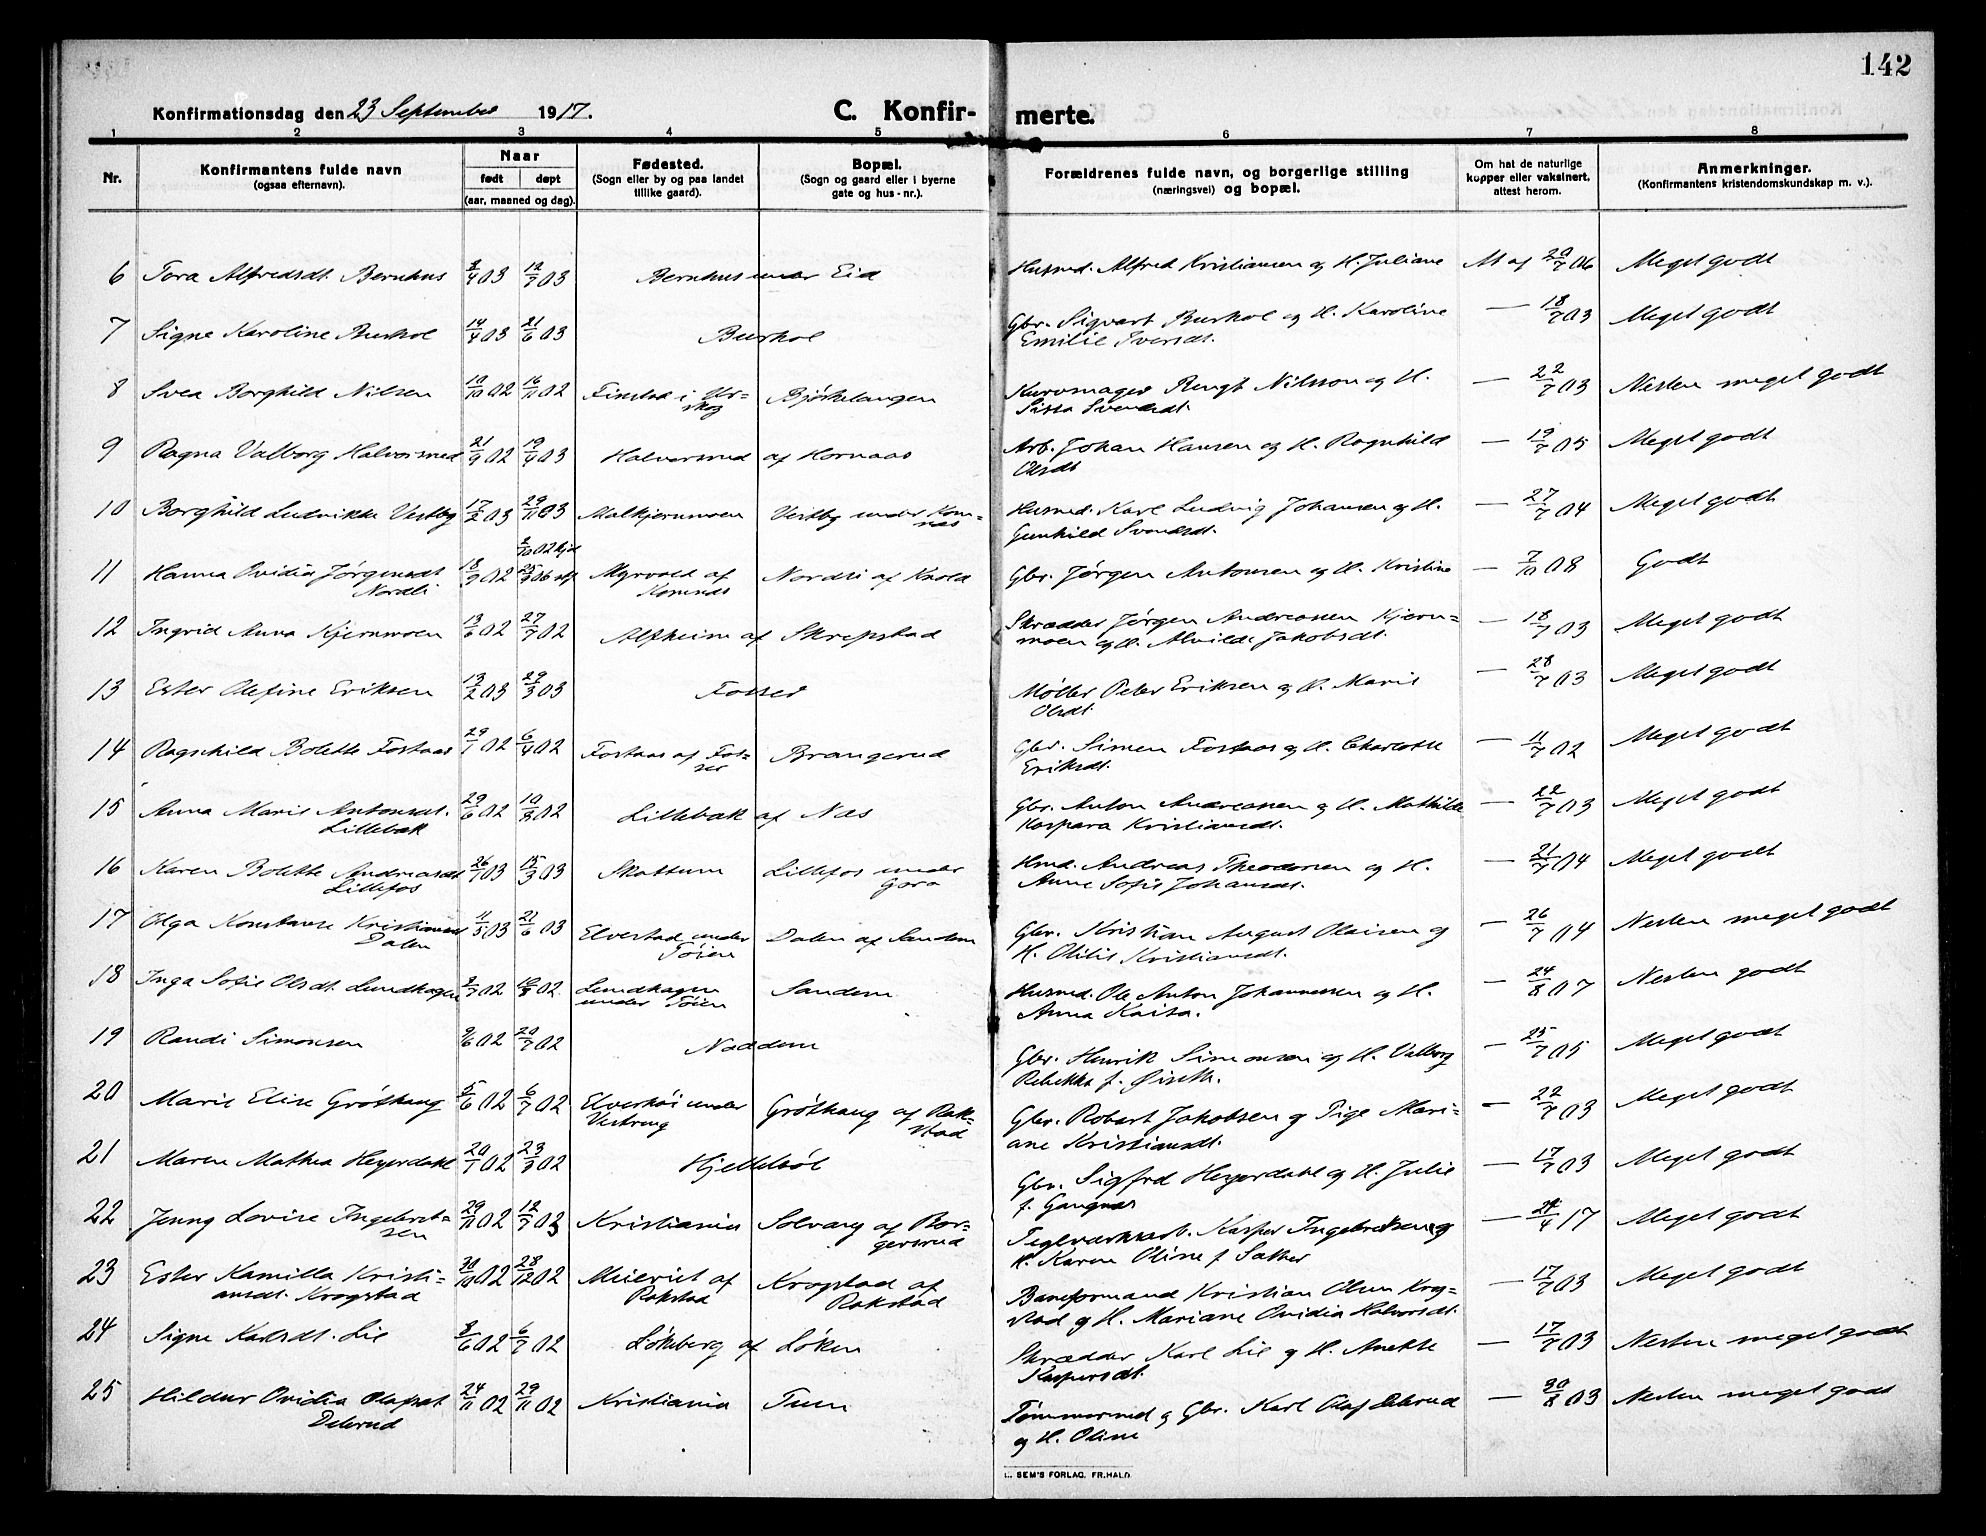 142
Konfirmationsdag den 23 September 1917.
C. Konfirmerte.
1 2 3 4 5 6 7 8
Nr.
Konfirmantens fulde navn
(ogsaa efternavn).
Naar
født døpt
(aar, maaned og dag).
Fødested.
(Sogn eller by og paa landet
tillike gaard).
Bopæl.
(Sogn og gaard eller i byerne
gate og hus-nr.).
Forældrenes fulde navn, og borgerlige stilling
(næringsvei) og bopæl.
Om hat de naturlige
kopper eller vaksinert,
attest herom.
Anmerkninger.
(Konfirmantens kristendomskundskap m. v.).
6 Tora Alfredsdt. Bernhus 8/4 03 12/7 03 Bernhus under Eid Husmd. Alfred Kristiansen og H. Juliane At af 20/7 06 Meget godt
7 Signe Karoline Burhol 14/4 03 21/6 03 Burhol Gbr. Sigvart Burhol og H. Karoline — 18/7 03 Meget godt
Emilie Iversdt.
8 Svea Borghild Nilsen 10/10 02 16/11 02 Finstad i Ur- Bjørkelangen Kurvmager Bengt Nilsson og H. — 22/7 03 Nesten meget godt
skog Sissa Svendsdt.
9 Ragna Valborg Halvorsmed 21/9 02 19/4 03 Halvorsmed af Hornaas Arb. Johan Hansen og H. Ragnhild — 19/7 05 Meget godt
Olsdt
10 Borghild Ludvikke Vestby 17/2 03 29/11 03 Malkjernmoen Vestby under Kom- Husmd. Karl Ludvig Johansen og H. — 27/7 04 Meget godt
næs Gunhild Svendsdt.
11 Hanna Ovidia Jørgensdt 18/9 02 /10 02 hjd 25/3 06 stf Myrvold af Nordli af Kvold Gbr. Jørgen Antonsen og H. Kristine — 7/10 08 Godt
Nordli Komnæs
12 Ingrid Anna Kjernmoen 13/6 02 27/7 02 Alfheim af Skrepstad Skrædder Jørgen Andreassen Kjern- — 18/7 03 Meget godt
moen og H. Alvilde Jakobsdt.
13 Ester Olefine Eriksen 13/2 03 29/3 03 Fosser Møller Peter Eriksen og H. Marie — 28/7 03 Meget godt
Olsdt.
14 Ragnhild Bolette Fostaas 29/1 02 6/4 02 Fostaas af Fos- Brangerud Gbr. Simen Fostaas og H. Charlotte — 11/7 02 Meget godt
ser Eriksdt.
15 Anna Marie Antonsdt. 29/6 02 10/8 02 Lillebæk af Næs Gbr. Anton Andreassen og H. Mathilde — 22/7 03 Meget godt
Lillebæk Kaspara Kristiansdt.
16 Karen Bolette Andreasdt 26/1 03 15/3 03 Skattum Lillefos under Hmd. Andreas Theodorsen og H. — 21/7 04 Meget godt
Lillefos Gara Anne Sofie Johansdt.
17 Olga Konstanse Kristiansdt 11/5 03 21/6 03 Elvestad under Dalen af Sandem Gbr. Kristian August Olaisen og — 26/7 04 Nesten meget godt
Dalen Tøien H. Otilie Kristiansdt.
18 Inga Sofie Olsdt. Lundhagen 02 02 Lundhagen Sandem Husmd. Ole Anton Johannessen og H. — 24/8 07 Nesten godt
under Tøien Anna Kaisa.
19 Randi Simonsen 9/6 02 20/7 02 Naddum Gbr. Henrik Simonsen og H. Valborg — 25/7 05 Meget godt
Rebekka f. Øiseth.
20 Marie Elise Grøthaug 5/6 02 6/7 02 Elverhøi under Grøthaug af Rak- Gbr. Robert Jakobsen og Pige Mari- — 22/7 03 Meget godt
Vestreng stad ane Kristiansdt.
21 Maren Mathea Heyerdahl 20/1 02 23/3 02 Hjellebøl Gbr. Sigfred Heyerdahl og H. Julie — 17/7 03 Meget godt
f. Gangnæs
22 Jenny Lovise Ingebret- 29/11 02 12/7 03 Kristiania Solvang af Bor- Teglværksarb. Kasper Ingebretsen og — 24/4 17 Meget godt
sen gersrud H. Karen Oline f Sæther
23 Ester Kamilla Kristi- 30/10 02 28/12 02 Meieriet af Krogstad af Baneformand Kristian Olsen Krog- — 17/7 03 Meget godt
ansdt. Krogstad Rakstad Rakstad stad og H. Mariane Ovidia Halvorsdt.
24 Signe Karlsdt. Lie 8/6 02 6/7 02 Løkeberg af Løken Skrædder Karl Lie og H. Anette — 17/7 03 Nesten meget godt
Kaspersdt.
25 Hildur Ovidia Olafsdt 24/11 02 29/11 02 Kristiania Tuen Tømmermd og Gbr. Karl Olaf Delerud — 30/8 03 Nesten meget godt
Delerud og H. Oline
L. SEM'S FORLAG, FR.HALD.